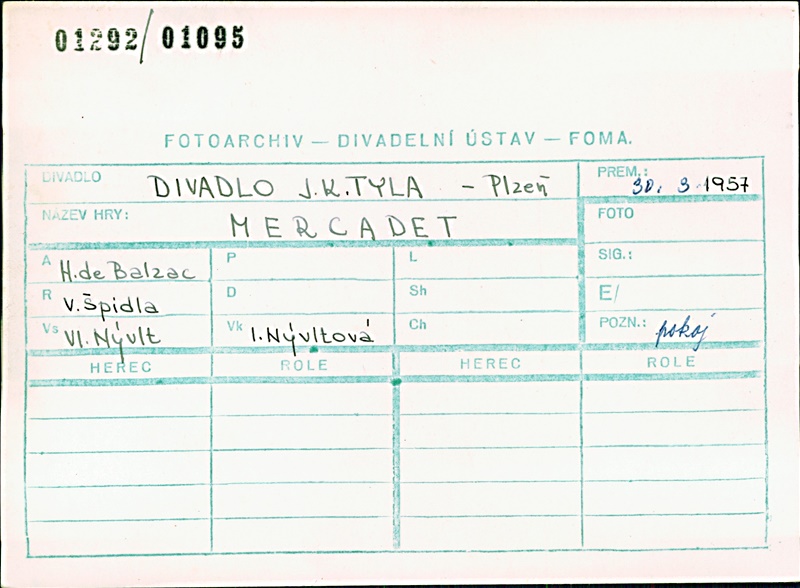 01292/01095
FOTOARCHIV — DIVADELNÍ ÚSTAV — FOMA.
DIVADLO DIVADLO J.K.TYLA - Plzeň PREM.: 30. 3. 1957
NÁZEV HRY: MERCADET FOTO
A H. de Balzac P L SIG.:
R V. Špidla D Sh E/
Vs Vl. Nývlt Vk I. Nývltová Ch POZN.: pokoj
HEREC ROLE HEREC ROLE